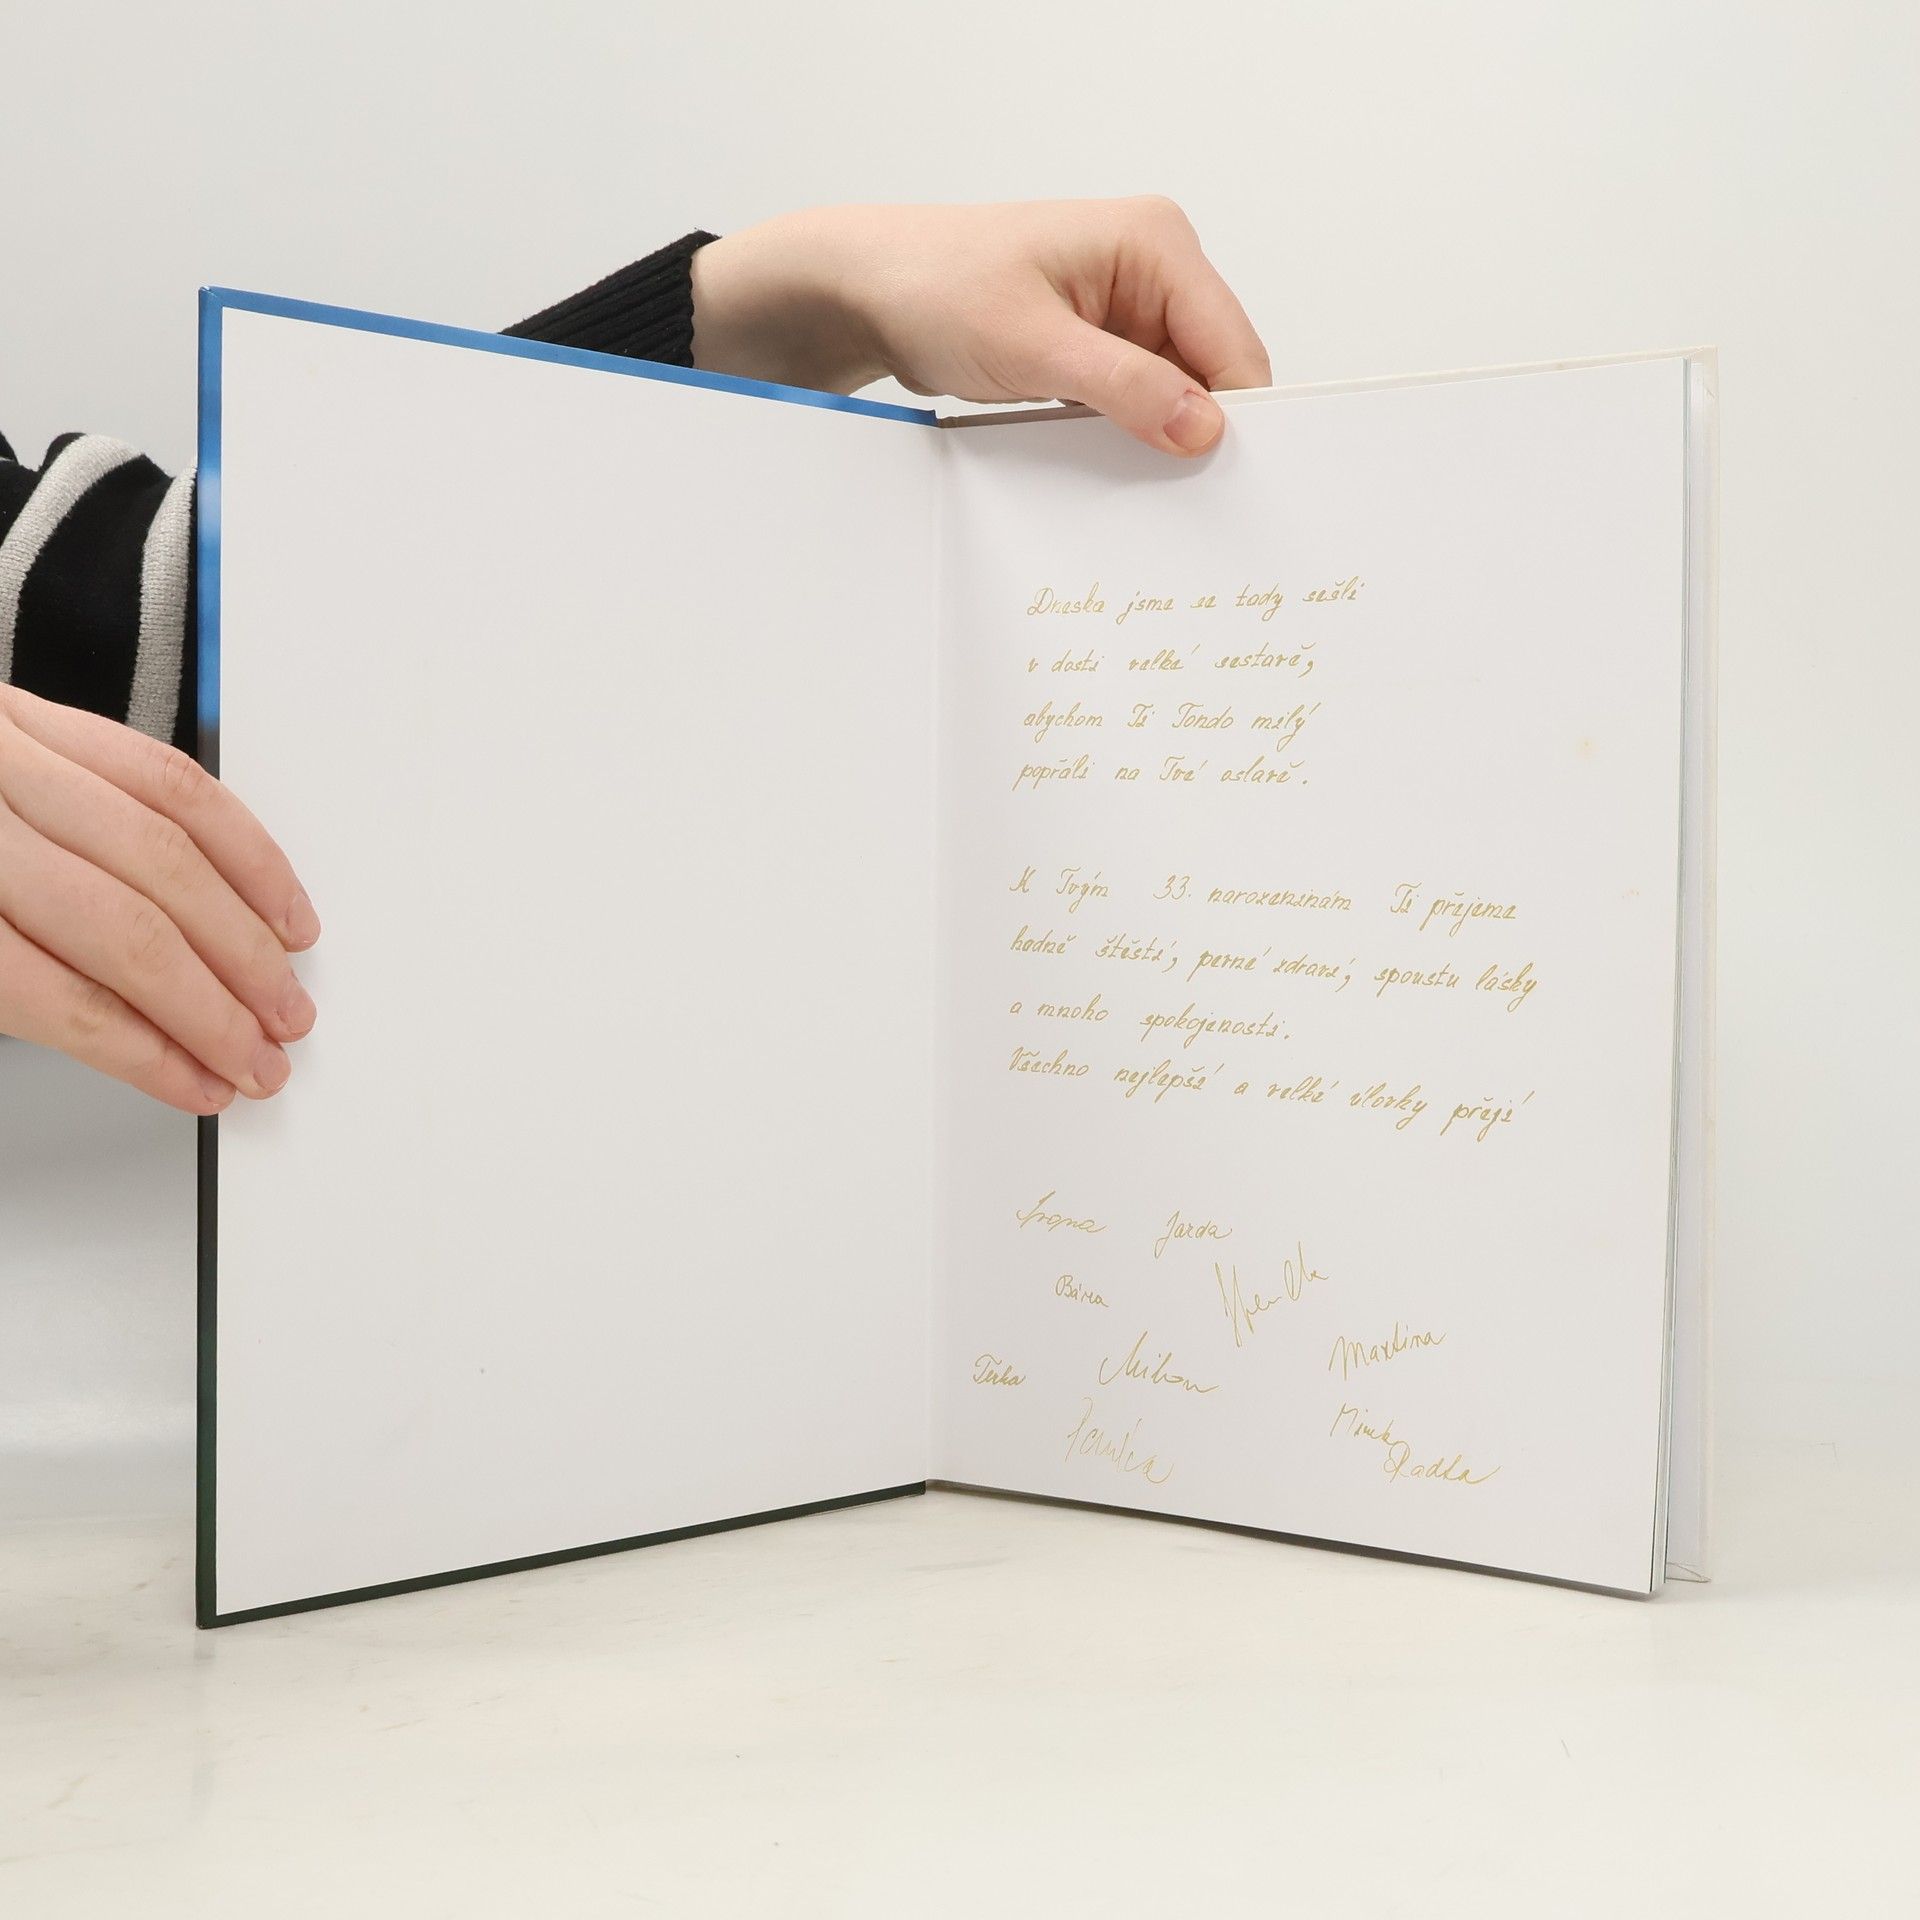 Dneska jsme se tady sešli
v dosti velké sestavě,
abychom Ti Tondo milý
popřáli na Tvé oslavě.
K Tvým 33. narozeninám Ti přejeme
hodně štěstí, pevné zdraví, spoustu lásky
a mnoho spokojenosti.
Všechno nejlepší a velké úlovky přejí
Ivana Jarda
Bára
Martina
Terka Milan
Mirek
Pavlína
Radka